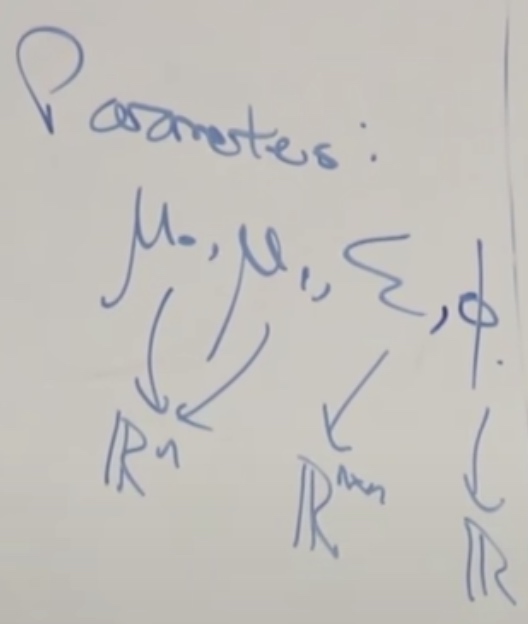 Parameters:
μ₀, μ₁, Σ, φ.
ℝⁿ ℝⁿˣⁿ ℝ